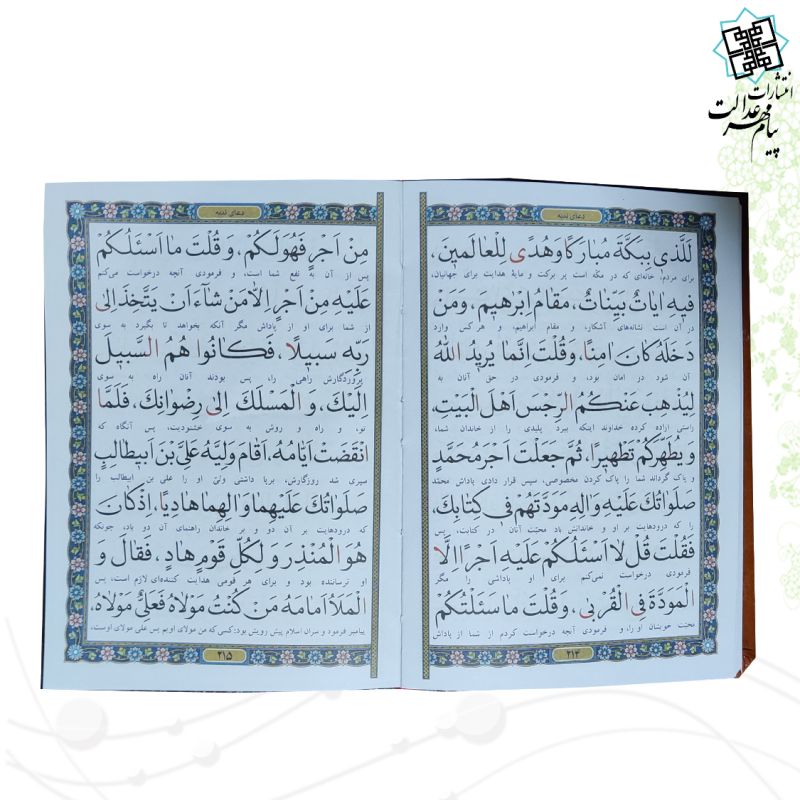 انتشارات
پیام مهر عدالت
دعای ندبه
لَلَّذی بِبَکَّةَ مُبارَکًا وَ هُدًی لِلْعالَمینَ،
برای مردم؛ خانه‌ای که در مکّه است پر برکت و مایهٔ هدایت برای جهانیان،
فیهِ ایاتٌ بَیِّناتٌ، مَقامُ اِبْرهیمَ، وَمَنْ
در آن است نشانه‌های آشکار، و مقام ابراهیم، و هر کس وارد
دَخَلَهُ کانَ امِنًا، وَ قُلْتَ اِنَّما یُریدُ اللهُ
آن شود در امان بود، و فرمودی در حق آنان به
لِیُذْهِبَ عَنْکُمُ الرِّجْسَ اَهْلَ الْبَیْتِ،
راستی اراده کرده خداوند اینکه ببرد پلیدی را از خاندان شما،
وَ یُطَهِّرَکُمْ تَطْهیرًا، ثُمَّ جَعَلْتَ اَجْرَ مُحَمَّدٍ
و پاک گرداند شما را پاک کردن مخصوصی، سپس قرار دادی پاداش محمّد
صَلَواتُکَ عَلَیْهِ وَ الِهِ مَوَدَّتَهُمْ فی کِتابِکَ،
را که درودهایت بر او و خاندانش باد محبّت آنان در کتابت، پس
فَقُلْتَ قُلْ لا اَسْئَلُکُمْ عَلَیْهِ اَجْرًا اِلَّا
فرمودی درخواست نمی‌کنم برای او پاداشی را مگر
الْمَوَدَّةَ فِی الْقُرْبی، وَ قُلْتَ ما سَئَلْتُکُمْ
محبّت خویشان او را، و فرمودی آنچه درخواست کردم از شما از پاداش
۲۱۴
دعای ندبه
مِنْ اَجْرٍ فَهُوَ لَکُمْ، وَ قُلْتَ ما اَسْئَلُکُمْ
پس از آن به نفع شما است، و فرمودی آنچه درخواست می‌کنم
عَلَیْهِ مِنْ اَجْرٍ اِلّا مَنْ شاءَ اَنْ یَتَّخِذَ اِلی
از شما برای او از پاداش مگر آنکه بخواهد تا بگیرد به سوی
رَبِّه سَبیلًا، فَکانُوا هُمُ السَّبیلَ
پروردگارش راهی را، پس بودند آنان راه به سوی
اِلَیْکَ، وَ الْمَسْلَکَ اِلی رِضْوانِکَ، فَلَمَّا
تو، و راه و روش به سوی خشنودیت، پس آنگاه که
انْقَضَتْ اَیّامُهُ، اَقامَ وَلِیَّهُ عَلِیَّ بْنَ اَبیطالِبٍ
سپری شد روزگارش، برپا داشتی ولیّ او را علی بن ابیطالب را
صَلَواتُکَ عَلَیْهِما وَ الِهِما هادِیًا، اِذْ کانَ
که درودهایت بر آن دو و بر خاندان راهنمای آن دو باد، چونکه
هُوَ الْمُنْذِرَ وَ لِکُلِّ قَوْمٍ هادٍ، فَقالَ وَ
او ترساننده بود و برای هر قومی هدایت کننده‌ای لازم است، پس
الْمَلَاُ اَمامَهُ مَنْ کُنْتُ مَوْلاهُ فَعَلِیٌّ مَوْلاهُ،
پیامبر فرمود و سران اسلام پیش رویش بود: کسی که من مولای اویم پس علی مولای اوست،
۲۱۵